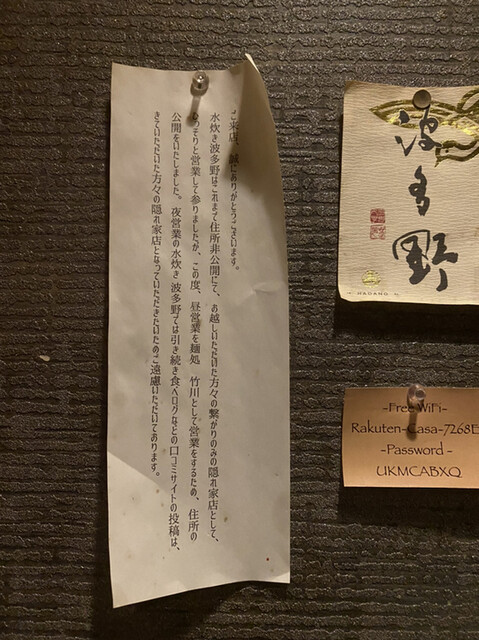 ご来店、誠にありがとうございます。
水炊き 波多野はこれまで住所非公開にて、お越しいただいた方々の繋がりのみの隠れ家店として、
ひっそりと営業して参りましたが、この度、昼営業を麺処 竹川として営業をするため、住所の
公開をいたしました。夜営業の水炊き 波多野では引き続き食べログなどの口コミサイトの投稿は、
きていただいた方々の隠れ家店となっていただきたいためご遠慮いただいております。
波多野
- HADANO -
-Free WiFi-
Rakuten-Casa-7268E
-Password -
UKMCABXQ